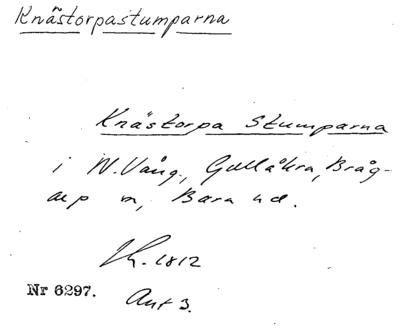 Knästorpastumparna
Knästorpa Stumparna
i N. Vång, Gullåkra, Bråg-
arp m, Bara hd.
Sk. 1812
Nr 6297. Akt 3.